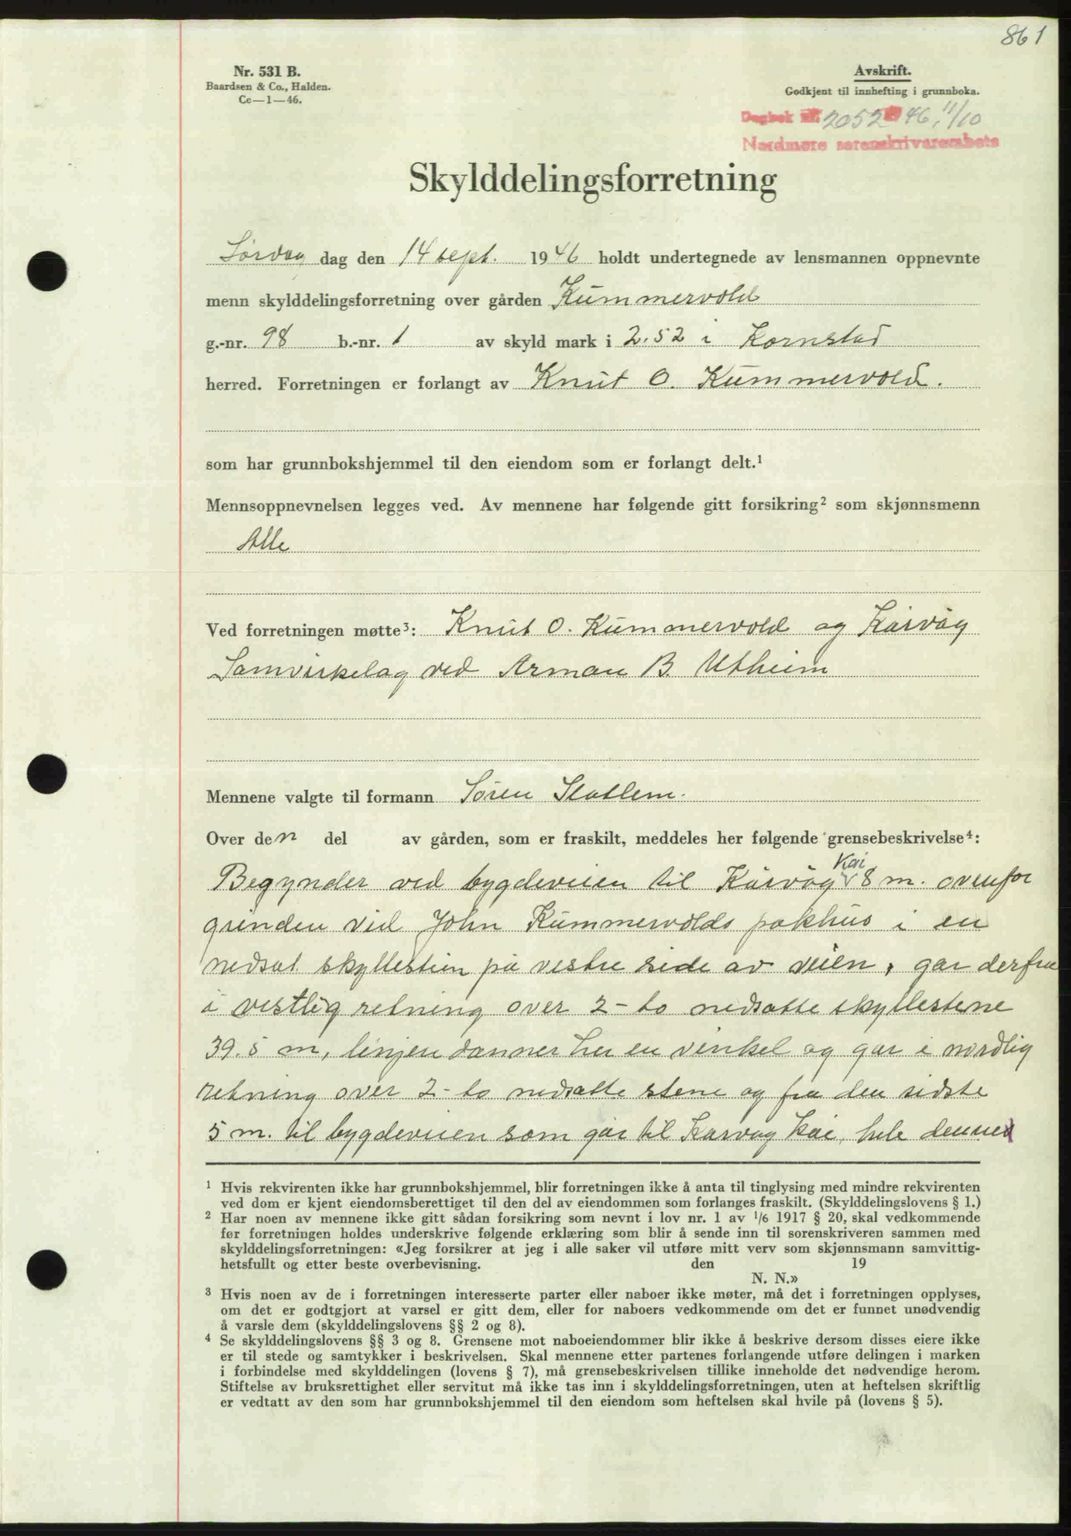 861
Nr. 531 B.
Baardsen & Co., Halden.
Ce—1—46.
Avskrift.
Godkjent til innhefting i grunnboka.
Dagbok nr. 2052 19 46, 11/10
Nordmøre sorenskriverembete
Skylddelingsforretning
Lørdag dag den 14 sept. 1946 holdt undertegnede av lensmannen oppnevnte
menn skylddelingsforretning over gården Kummervold
g.-nr. 98 b.-nr. 1 av skyld mark i 2.52 i Kornstad
herred. Forretningen er forlangt av Knut O. Kummervold.
som har grunnbokshjemmel til den eiendom som er forlangt delt.¹
Mennsoppnevnelsen legges ved. Av mennene har følgende gitt forsikring² som skjønnsmenn
Alle
Ved forretningen møtte³: Knut O. Kummervold og Kårvåg
Samvirkelag ved Arman B. Utheim
Mennene valgte til formann Søren Slatlem.
Over den del av gården, som er fraskilt, meddeles her følgende grensebeskrivelse⁴:
Begynder ved bygdeveien til Kårvåg Kai 8 m. ovenfor
grinden vid John Kummervolds pakhus i en
nedsat skyllestein på vestre side av veien, går derfra
i vestlig retning over 2- to nedsatte skyllestene
39.5 m, linjen danner her en vinkel og går i nordlig
retning over 2- to nedsatte stene og fra den sidste
5 m. til bygdeveien som går til Karvag kai, hele denne
¹ Hvis rekvirenten ikke har grunnbokshjemmel, blir forretningen ikke å anta til tinglysing med mindre rekvirenten
ved dom er kjent eiendomsberettiget til den del av eiendommen som forlanges fraskilt. (Skylddelingslovens § 1.)
² Har noen av mennene ikke gitt sådan forsikring som nevnt i lov nr. 1 av 1/6 1917 § 20, skal vedkommende
før forretningen holdes underskrive følgende erklæring som blir å sende inn til sorenskriveren sammen med
skylddelingsforretningen: «Jeg forsikrer at jeg i alle saker vil utføre mitt verv som skjønnsmann samvittig-
hetsfullt og etter beste overbevisning. den 19
N. N.»
³ Hvis noen av de i forretningen interesserte parter eller naboer ikke møter, må det i forretningen opplyses,
om det er godtgjort at varsel er gitt dem, eller for naboers vedkommende om det er funnet unødvendig
å varsle dem (skylddelingslovens §§ 2 og 8).
⁴ Se skylddelingslovens §§ 3 og 8. Grensene mot naboeiendommer blir ikke å beskrive dersom disses eiere ikke
er til stede og samtykker i beskrivelsen. Skal mennene etter partenes forlangende utføre delingen i marken
i forbindelse med skylddelingen (lovens § 7), må grensebeskrivelsen tillike inneholde det nødvendige herom.
Stiftelse av bruksrettighet eller servitut må ikke tas inn i skylddelingsforretningen, uten at heftelsen skriftlig
er vedtatt av den som har grunnbokshjemmel til den eiendom som heftelsen skal hvile på (lovens § 5).